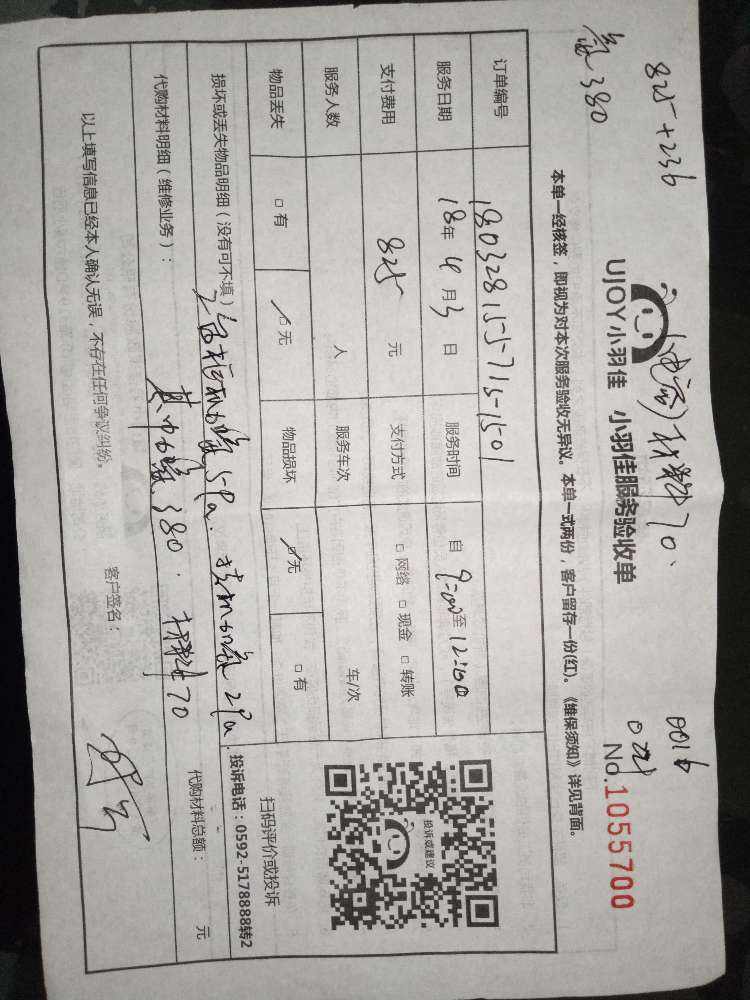 825+236
氟380
材料70.
0016
UJOY小羽佳 小羽佳服务验收单
No.1055700
本单一经核签，即视为对本次服务验收无异议。本单一式两份，客户留存一份(红)。《维保须知》详见背面。
订单编号 180328155715-1501
服务日期 18年4月3日 服务时间 自9:00至12:00
支付费用 825元 支付方式 □网络 □现金 □转账
服务人数 人 服务车次 车/次
物品丢失 □有 □无 物品损坏 □无 □有
投诉或建议
扫码评价或投诉
投诉电话：0592-5178888转2
损坏或丢失物品明细（没有可不填）
代购材料明细（维修业务）：
380. 材料70
代购材料总额： 元
以上填写信息已经本人确认无误，不存在任何争议纠纷。
客户签名：